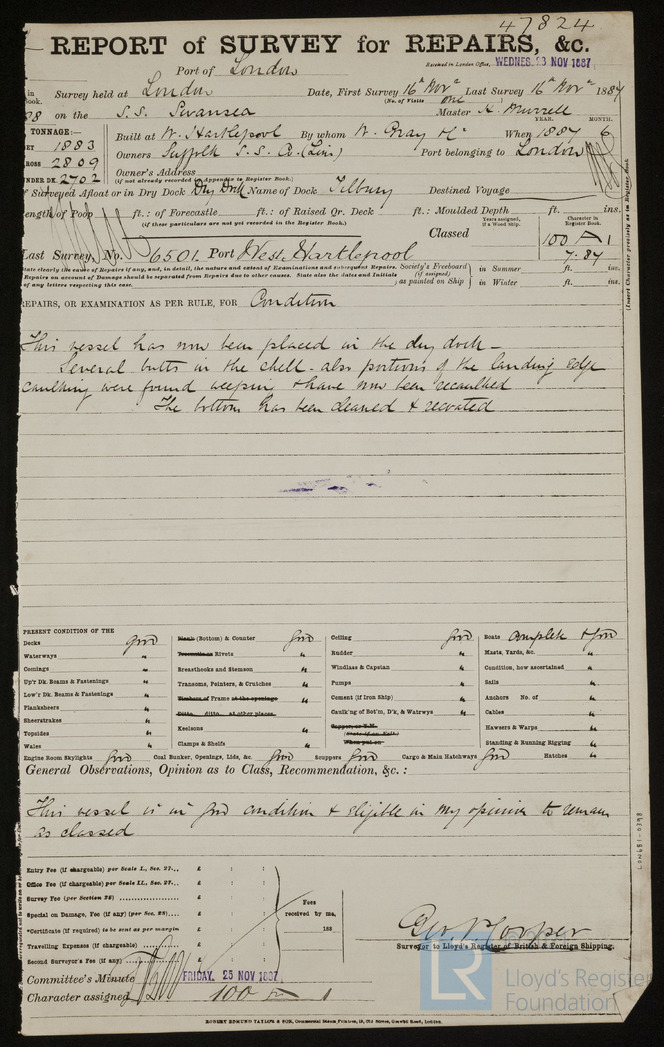 47824
REPORT of SURVEY for REPAIRS, &c.
Port of London
Received in London Office, WEDNES. 23 NOV 1887
Survey held at London Date, First Survey 16th Novr Last Survey 16th Novr 1887
(No. of Visits one)
on the S.S. Swansea Master H. Murrell
TONNAGE:—
1883
GROSS 2809
UNDER DK. 2702
YEAR. MONTH.
Built at W. Hartlepool By whom W. Gray & Co When 1887 6
Owners Suffolk S.S. Co. (Lim) Port belonging to London
Owner's Address
(if not already recorded in Appendix to Register Book.)
If Surveyed Afloat or in Dry Dock Dry Dock Name of Dock Tilbury Destined Voyage
Length of Poop ft.: of Forecastle ft.: of Raised Qr. Deck ft.: Moulded Depth ft. ins.
(if these particulars are not yet recorded in the Register Book.)
Years assigned, if a Wood Ship.
Character in Register Book.
Classed 100 A 1
7.87
Last Survey, No. 6501 Port West Hartlepool
State clearly the cause of Repairs if any, and, in detail, the nature and extent of Examinations and subsequent Repairs.
Repairs on account of Damage should be separated from Repairs due to other causes. State also the dates and Initials
of any letters respecting this case.
Society's Freeboard (if assigned) as painted on Ship
in Summer ft. ins.
in Winter ft. ins.
(Insert Character precisely as in Register Book
REPAIRS, OR EXAMINATION AS PER RULE, FOR Condition
This vessel has now been placed in the dry dock –
Several butts in the shell – also portions of the landing edge
caulking were found weeping & have now been recaulked
The bottom has been cleaned & recoated
PRESENT CONDITION OF THE
Decks good
Waterways "
Comings "
Up'r Dk. Beams & Fastenings "
Low'r Dk. Beams & Fastenings "
Planksheers "
Sheerstrakes "
Topsides "
Wales "
Plank (Bottom) & Counter good
Treenails or Rivets "
Breasthooks and Stemson "
Transoms, Pointers, & Crutches "
Timbers of Frame at the openings "
Ditto ditto at other places
Keelsons "
Clamps & Shelfs "
Ceiling good
Rudder "
Windlass & Capstan "
Pumps "
Cement (if Iron Ship) "
Caulk'ng of Bot'm, D'k, & Watrwys "
Copper, or Y.M.
(State if on Felt)
When put on
Boats Complete & good
Masts, Yards, &c. "
Condition, how ascertained "
Sails "
Anchors No. of "
Cables "
Hawsers & Warps "
Standing & Running Rigging "
Engine Room Skylights good Coal Bunker, Openings, Lids, &c. good Scuppers good Cargo & Main Hatchways good Hatches "
General Observations, Opinion as to Class, Recommendation, &c.:
This vessel is in good condition & eligible in my opinion to remain
as classed
Entry Fee (if chargeable) per Scale I., Sec. 27... £ : :
Office Fee (if chargeable) per Scale II., Sec. 27... £ : :
Survey Fee (per Section 28) £ : :
Special on Damage, Fee (if any) (per Sec. 28) £ : :
*Certificate (if required) to be sent as per margin £ : :
Travelling Expenses (if chargeable) £ : :
Second Surveyor's Fee (if any) £ : :
Fees received by me,
188
Surveyor to Lloyd's Register of British & Foreign Shipping.
Committee's Minute FRIDAY, 25 NOV 1887
Character assigned 100 A 1
ROBERT EDMUND TAYLOR & SON, Commercial Steam Printers, 19, Old Street, Goswell Road, London.
LON651-0398
LR
Lloyd's Register
Foundation